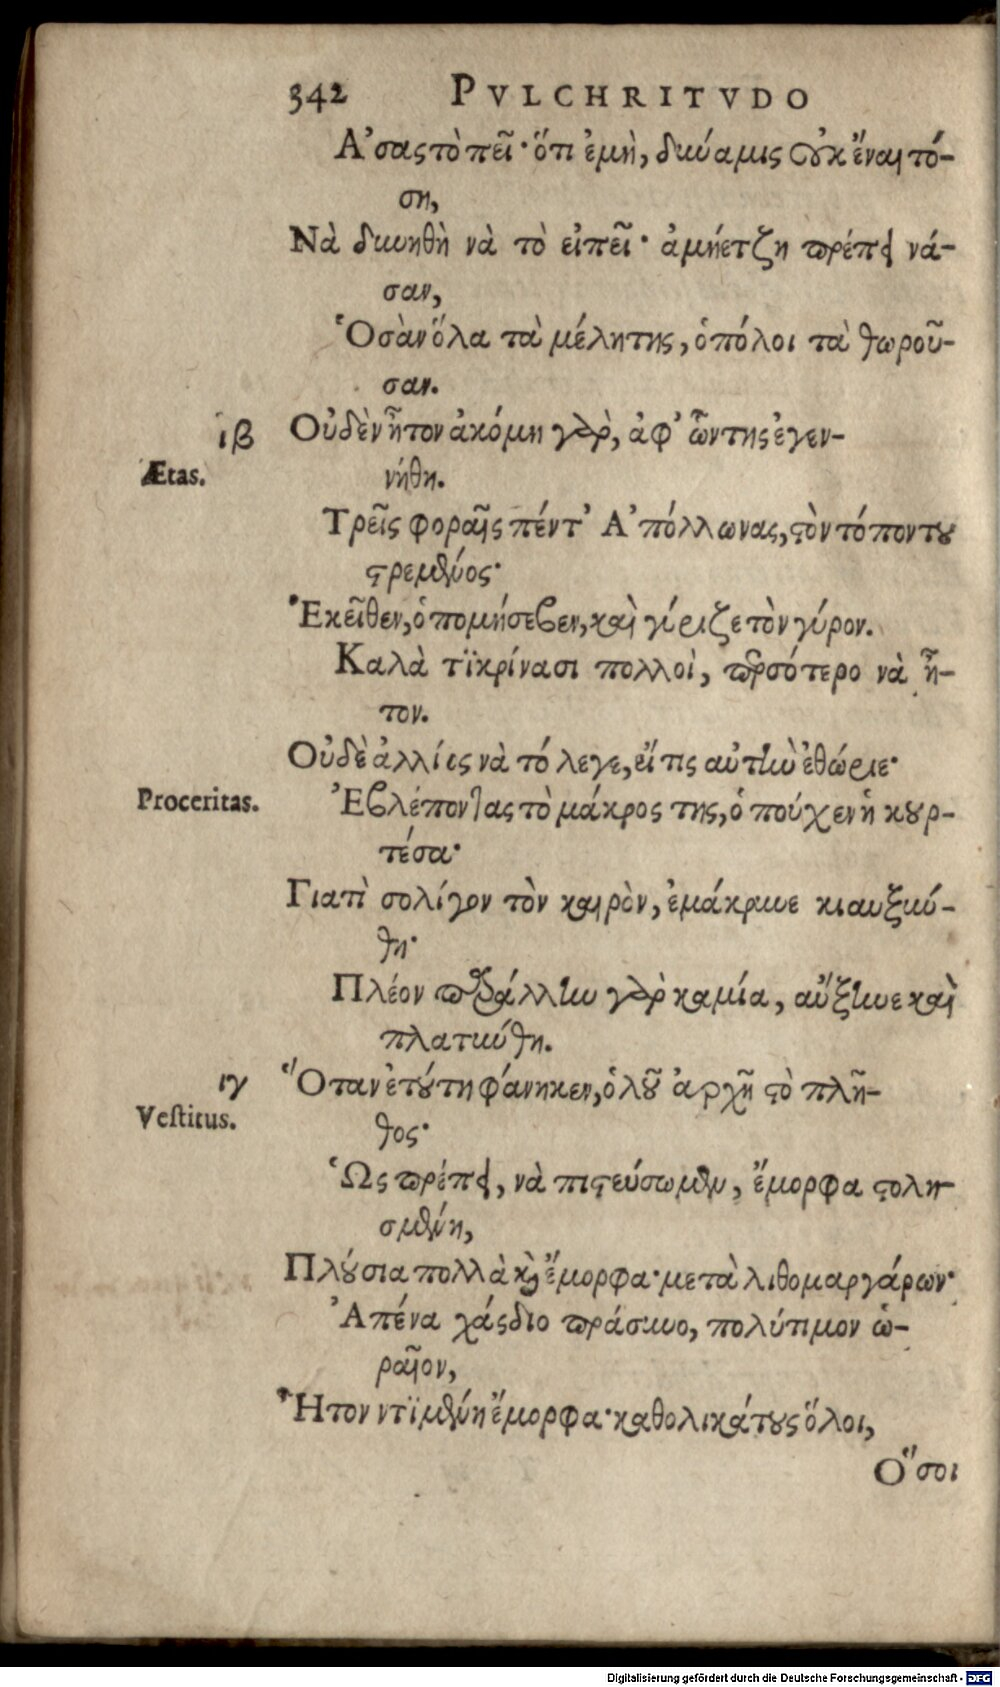 342 PVLCHRITVDO
Ἀ σας τὸ πεῖ· ὅτι ἐμὴ, δυύαμις οὐκ ἔναι τό-
ση,
Νὰ δυνηθὴ νὰ τὸ εἰπεῖ· ἀμήετζη πρέπει νά-
σαν,
Ὁσὰν ὅλα τὰ μέλητης, ὁπόλοι τὰ θωροῦ-
σαν.
ιβ Οὐδὲν ἦτον ἀκόμη γὰρ, ἀφ' ὧν της ἐγεν-
Ætas. νήθη.
Τρεῖς φοραῖς πέντ' Ἀπόλλωνας, στὸν τόπον του
στρεμένος·
Ἐκεῖθεν, ὁπομήσεβεν, καὶ γύριζε τὸν γύρον.
Καλὰ τϊκρίνασι πολλοὶ, περσότερο νὰ ἦ-
τον.
Οὐδὲ ἀλλίες νὰ τό λεγε, εἴ τις αὐτὴν ἐθώριε·
Proceritas. Ἐβλέποντας τὸ μάκρος της, ὁ πούχεν ἡ κουρ-
τέσα·
Γιατὶ σολίγον τὸν καιρὸν, ἐμάκρυνε κιαυξύν-
θη·
Πλέον παρ' ἄλλην γὰρ καμία, αὔξηνε καὶ
πλατύνθη.
ιγ Ὅταν ἐτούτη φάνηκεν, ὁλοῦ ἀρχῆ στὸ πλῆ-
Vestitus. θος·
Ὡς πρέπει, νὰ πιστεύσωμεν, ἔμορφα στολη-
σμένη,
Πλούσια πολλὰ καὶ ἔμορφα· μετὰ λιθομαργάρων·
Ἀπένα χάσδιο πράσινο, πολύτιμον ὡ-
ραῖον,
Ἦτον ντϊμένη ἔμορφα· καθολικάτους ὅλοι,
Ὅσοι
Digitalisierung gefördert durch die Deutsche Forschungsgemeinschaft - DFG